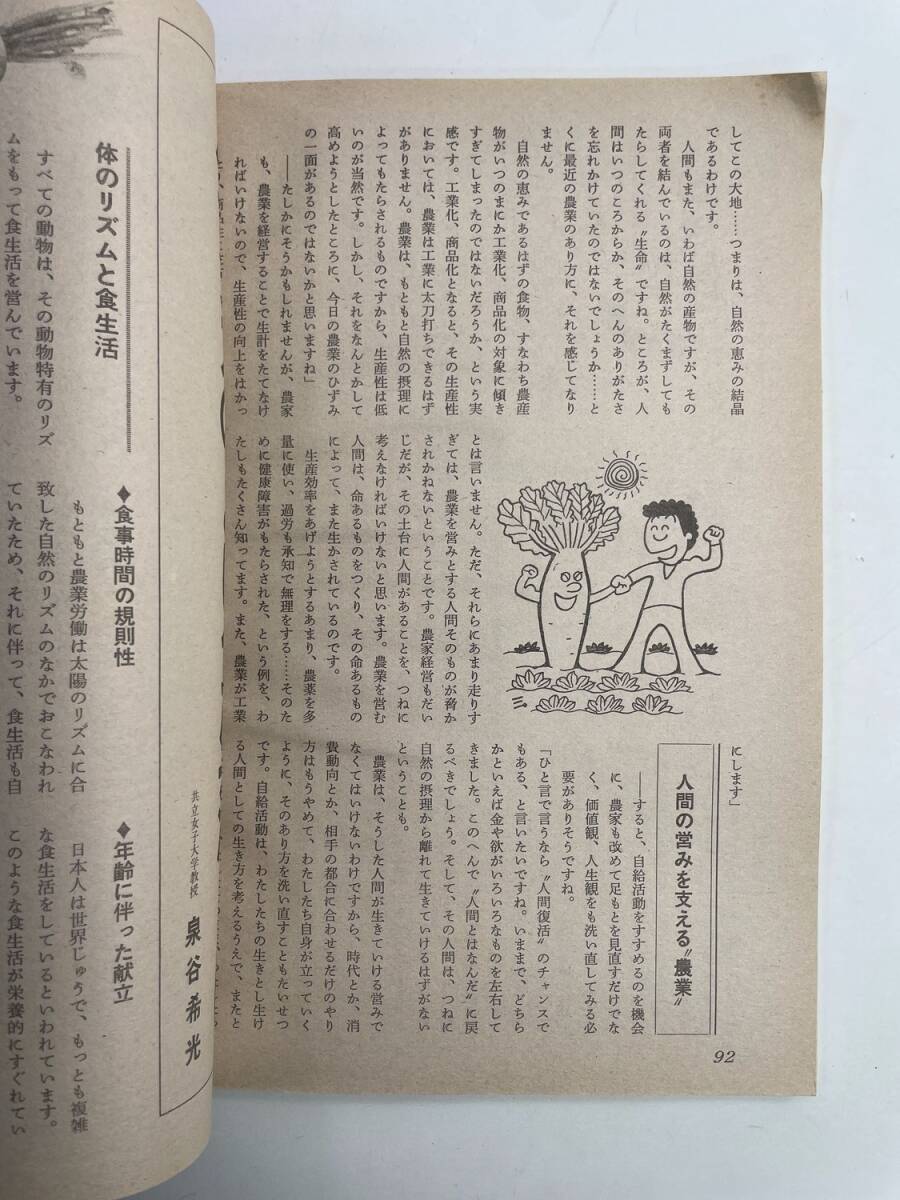 してこの大地……つまりは、自然の恵みの結晶
であるわけです。
人間もまた、いわば自然の産物ですが、その
両者を結んでいるのは、自然がたくまずしても
たらしてくれる〝生命〟ですね。ところが、人
間はいつのころからか、そのへんのありがたさ
を忘れかけていたのではないでしょうか……と
くに最近の農業のあり方に、それを感じてなり
ません。
自然の恵みであるはずの食物、すなわち農産
物がいつのまにか工業化、商品化の対象に傾き
すぎてしまったのではないだろうか、という実
感です。工業化、商品化となると、その生産性
においては、農業は工業に太刀打ちできるはず
がありません。農業は、もともと自然の摂理に
よってもたらされるものですから、生産性は低
いのが当然です。しかし、それをなんとかして
高めようとしたところに、今日の農業のひずみ
の一面があるのではないかと思いますね」
――たしかにそうかもしれませんが、農家
も、農業を経営することで生計をたてなけ
ればいけないので、生産性の向上をはかっ
とは言いません。ただ、それらにあまり走りす
ぎては、農業を営みとする人間そのものが脅か
されかねないということです。農家経営もだい
じだが、その土台に人間があることを、つねに
考えなければいけないと思います。農業を営む
人間は、命あるものをつくり、その命あるもの
によって、また生かされているのです。
生産効率をあげようとするあまり、農薬を多
量に使い、過労も承知で無理をする……そのた
めに健康障害がもたらされた、という例を、わ
たしもたくさん知ってます。また、農業が工業
にします」
人間の営みを支える〝農業〟
――すると、自給活動をすすめるのを機会
に、農家も改めて足もとを見直すだけでな
く、価値観、人生観をも洗い直してみる必
要がありそうですね。
「ひと言で言うなら〝人間復活〟のチャンスで
もある、と言いたいですね。いままで、どちら
かといえば金や欲がいろいろなものを左右して
きました。このへんで〝人間とはなんだ〟に戻
るべきでしょう。そして、その人間は、つねに
自然の摂理から離れて生きていけるはずがない
ということも。
農業は、そうした人間が生きていける営みで
なくてはいけないわけですから、時代とか、消
費動向とか、相手の都合に合わせるだけのやり
方はもうやめて、わたしたち自身が立っていく
ように、そのあり方を洗い直すこともたいせつ
です。自給活動は、わたしたちの生きとし生け
る人間としての生き方を考えるうえで、またと
92
共立女子大学教授 泉谷希光
体のリズムと食生活
すべての動物は、その動物特有のリズ
ムをもって食生活を営んでいます。
◆食事時間の規則性
もともと農業労働は太陽のリズムに合
致した自然のリズムのなかでおこなわれ
ていたため、それに伴って、食生活も自
◆年齢に伴った献立
日本人は世界じゅうで、もっとも複雑
な食生活をしているといわれています。
このような食生活が栄養的にすぐれてい